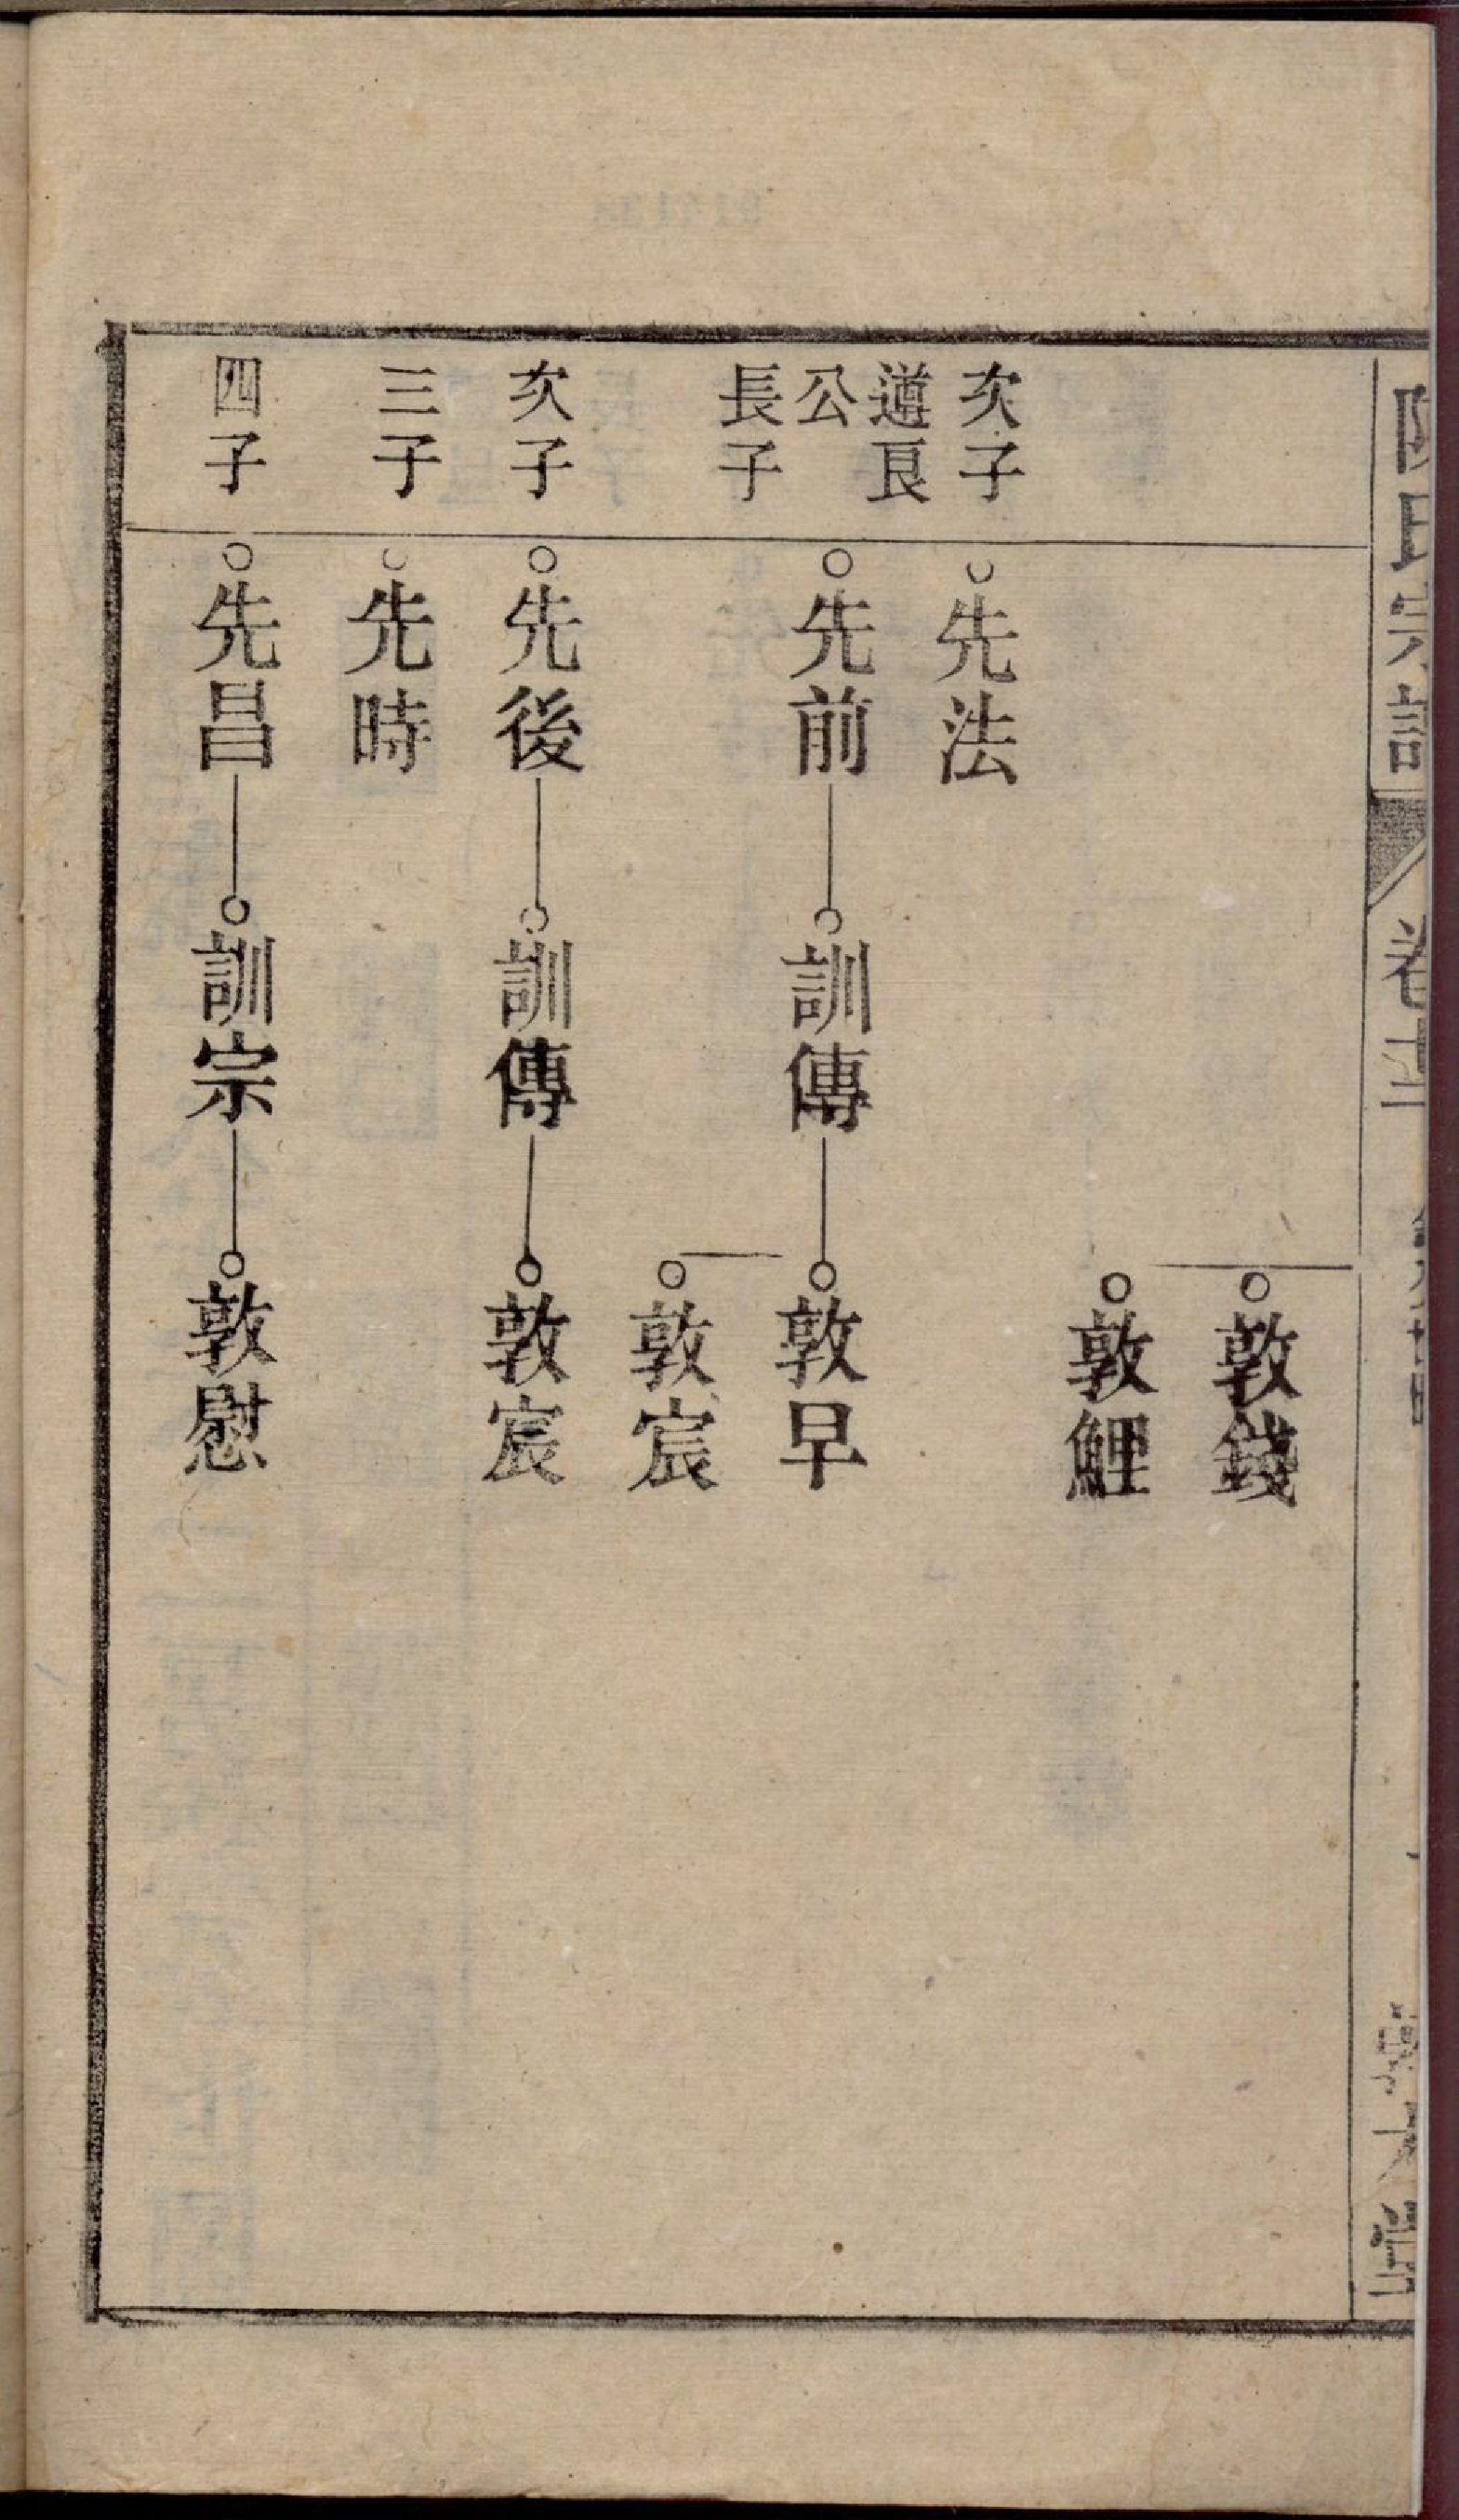 氏宗譜
敦錢
敦鯉
次子
先法
遵良
公
長子
先前
訓傳
敦早
敦宸
次子
先後
訓傳
敦宸
三子
先時
四子
先昌
訓宗
敦慰